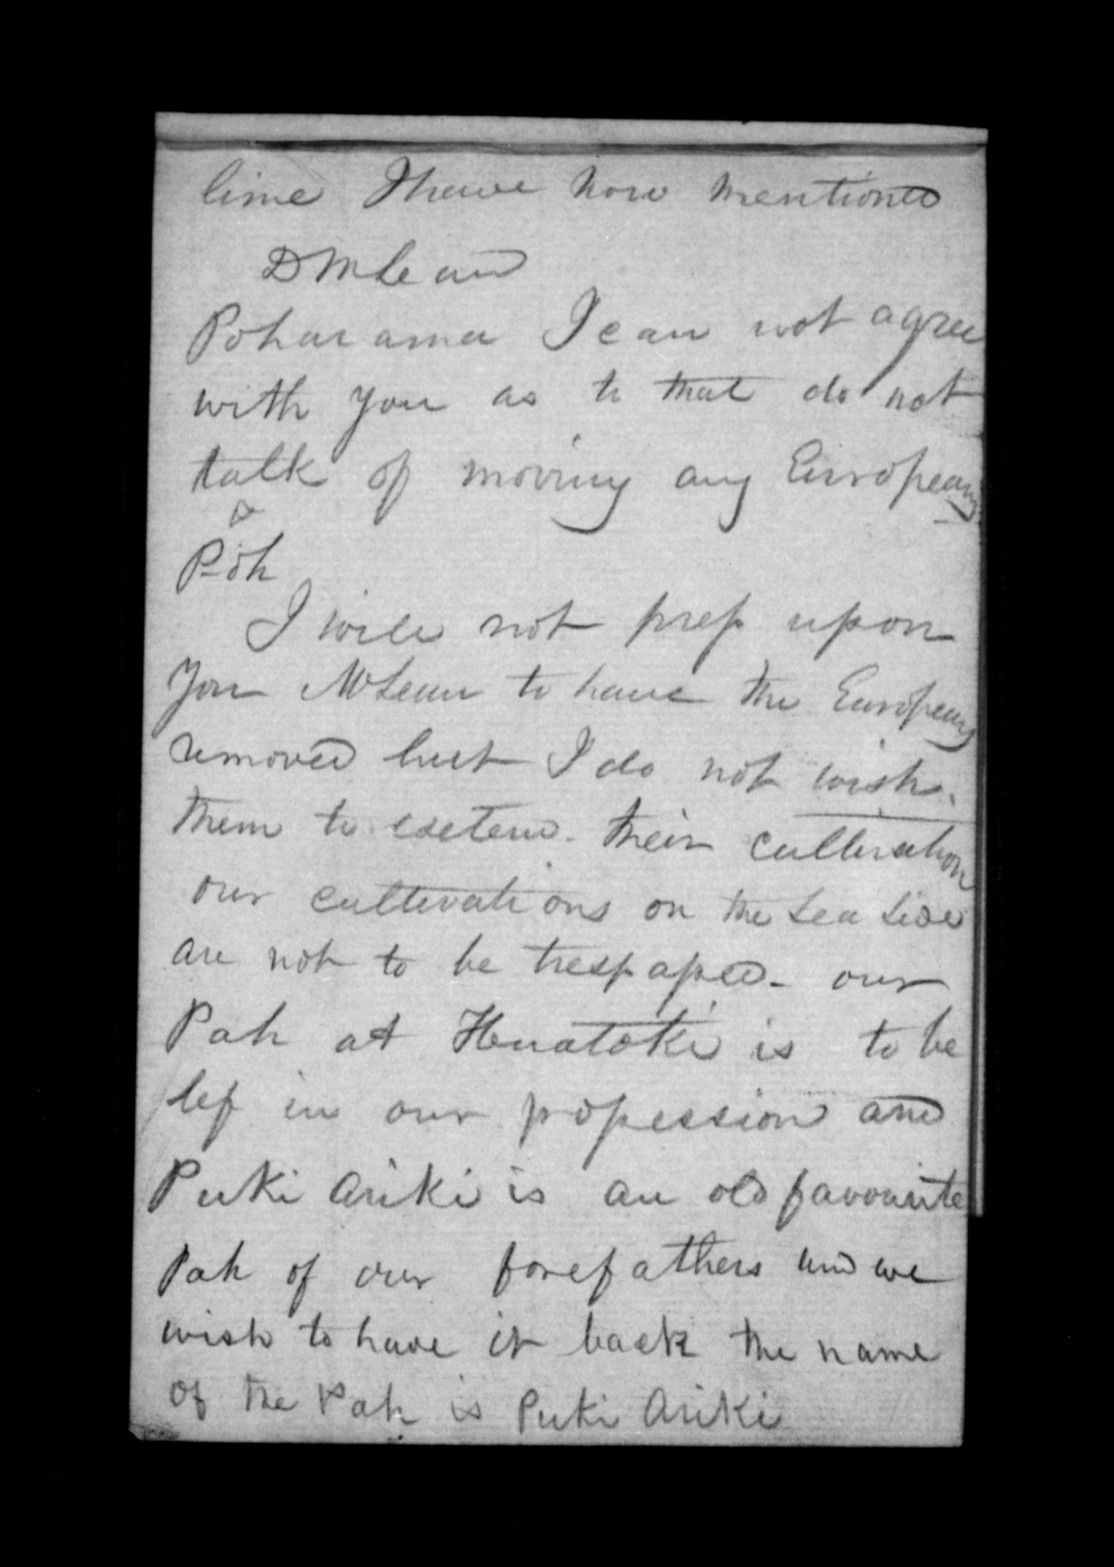 line I have now mentioned
D McLean
Poharama I can not agree
with you as to that do not
talk of moving any Europeans
Poh
I will not press upon
you McLean to have the Europeans
removed but I do not wish
them to extend their cultivation
our cultivations on the sea side
are not to be trespassed - our
Pah at Huatoki is to be
lef in our possession and
Puki Ariki is an old favourite
Pah of our forefathers and we
wish to have it back the name
of the Pah is Puki Ariki